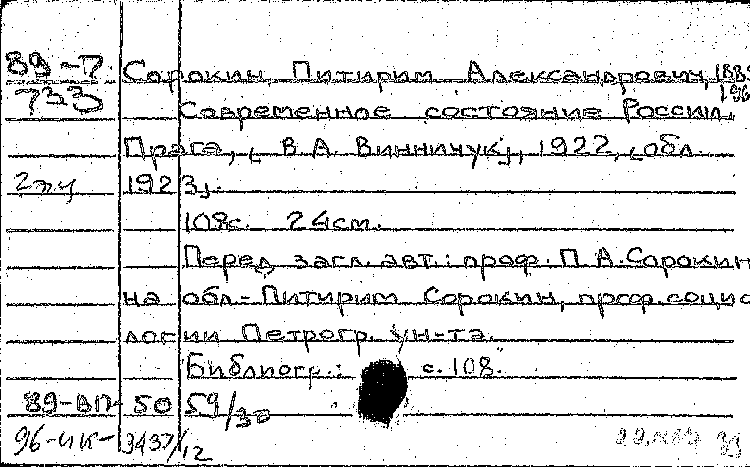 89-7 Сорокин, Питирим Александрович, 1889
733 196
Современное состояние России.
Прага, [В.А. Винничук], 1922, [обл.
2экз 1923].
108с. 24см.
Перед загл. авт.: проф. П.А. Сорокин
на обл.- Питирим Сорокин, проф. социо
логии Петрогр. ун-та.
Библиогр.: с. 108.
89-ВП- 50 59/30
96-ИК- 3437/12